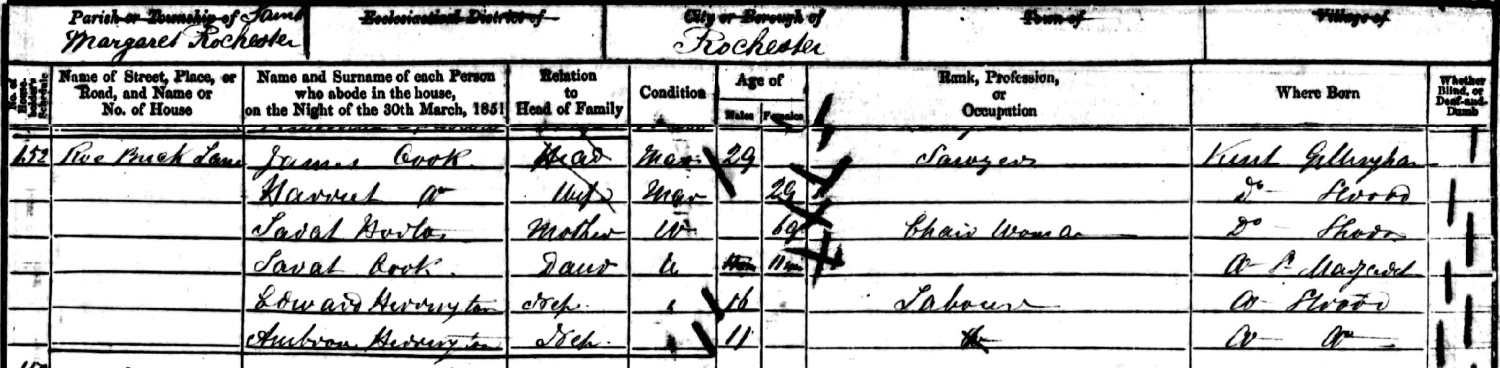 Parish or Township of Saint Margaret Rochester
Ecclesiastical District of
City or Borough of Rochester
Town of
Village of
No. of House-holder's Schedule
Name of Street, Place, or Road, and Name or No. of House
Name and Surname of each Person who abode in the house, on the Night of the 30th March, 1851
Relation to Head of Family
Condition
Age of
Males Females
Rank, Profession, or Occupation
Where Born
Whether Blind, or Deaf-and-Dumb
152 Roe Buck Lane James Cook Head Mar 29 Sawyer Kent Gillingham
Harriet Do Wife Mar 29 Do Strood
Sarah Mother W 69 Chair Woman Do
Sarah Cook Daur U 11 Do St Margaret
Edward Herrington Nep 16 Labourer Do Strood
Ambrose Herrington Nep 11 Do Do